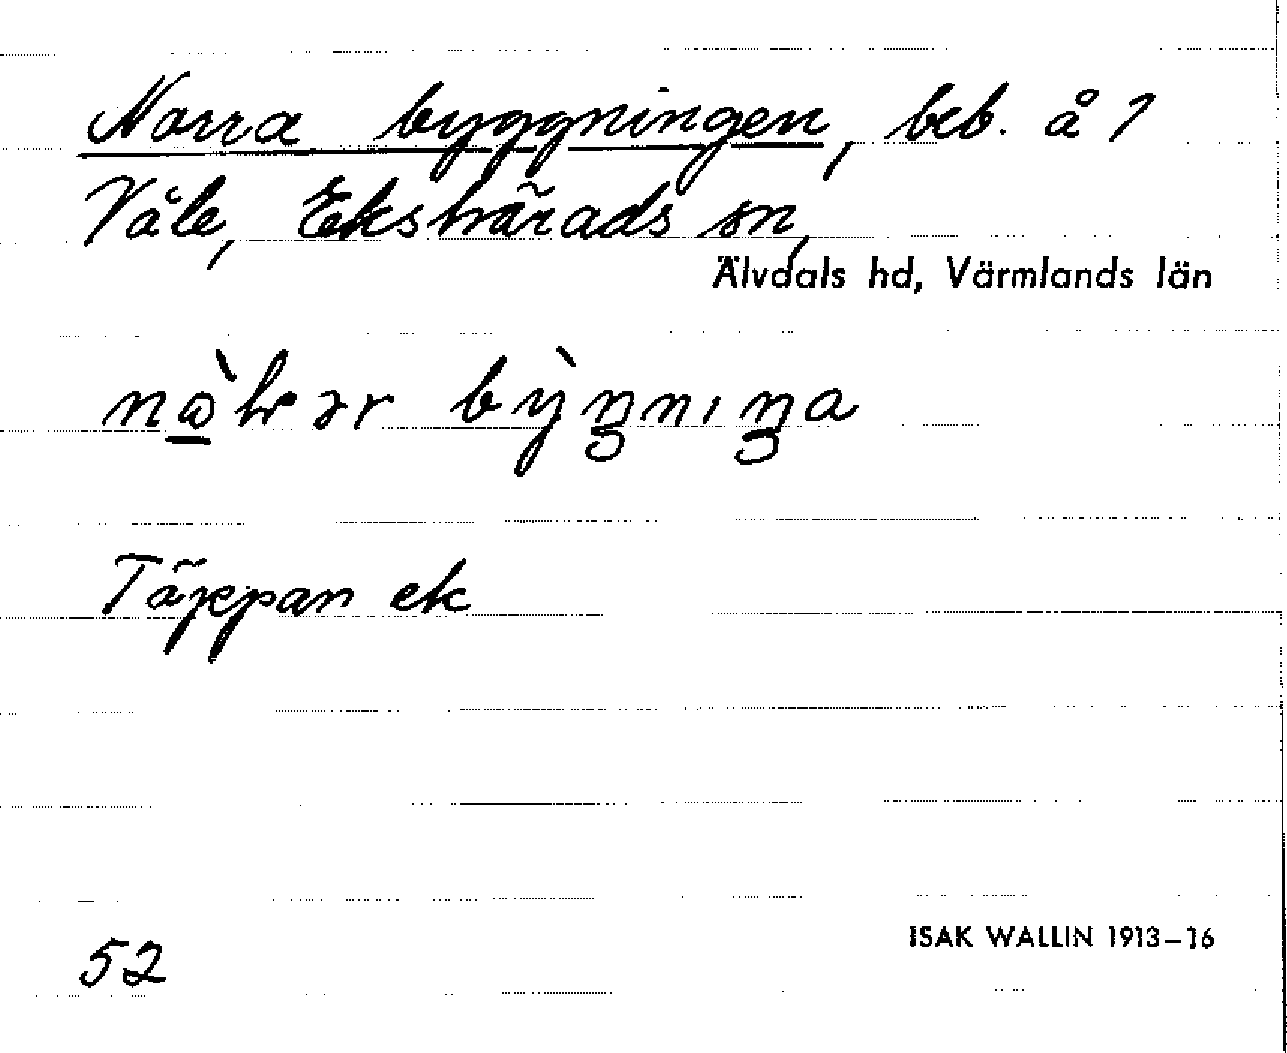 Norra byggningen, beb. å 1
Våle, Ekshärads sn,
Älvdals hd, Värmlands län
Täppan ek
52
ISAK WALLIN 1913–16